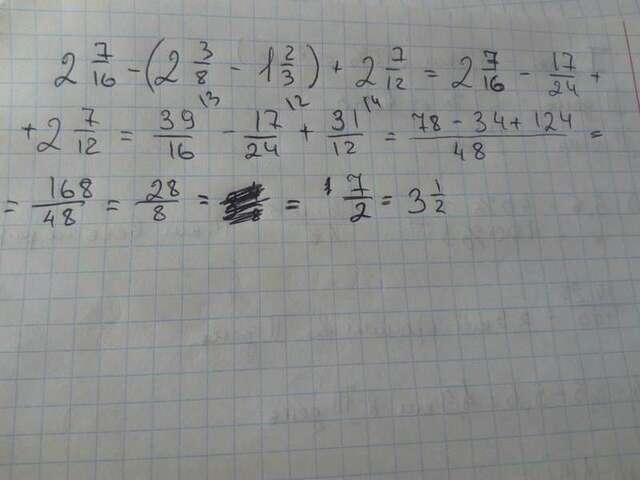 2 7/16 - (2 3/8 - 1 2/3) + 2 7/12 = 2 7/16 - 17/24 +
+ 2 7/12 = 39/16 \13 - 17/24 \12 + 31/12 \14 = 78 - 34 + 124/48 =
= 168/48 = 28/8 = = 7/2 = 3 1/2